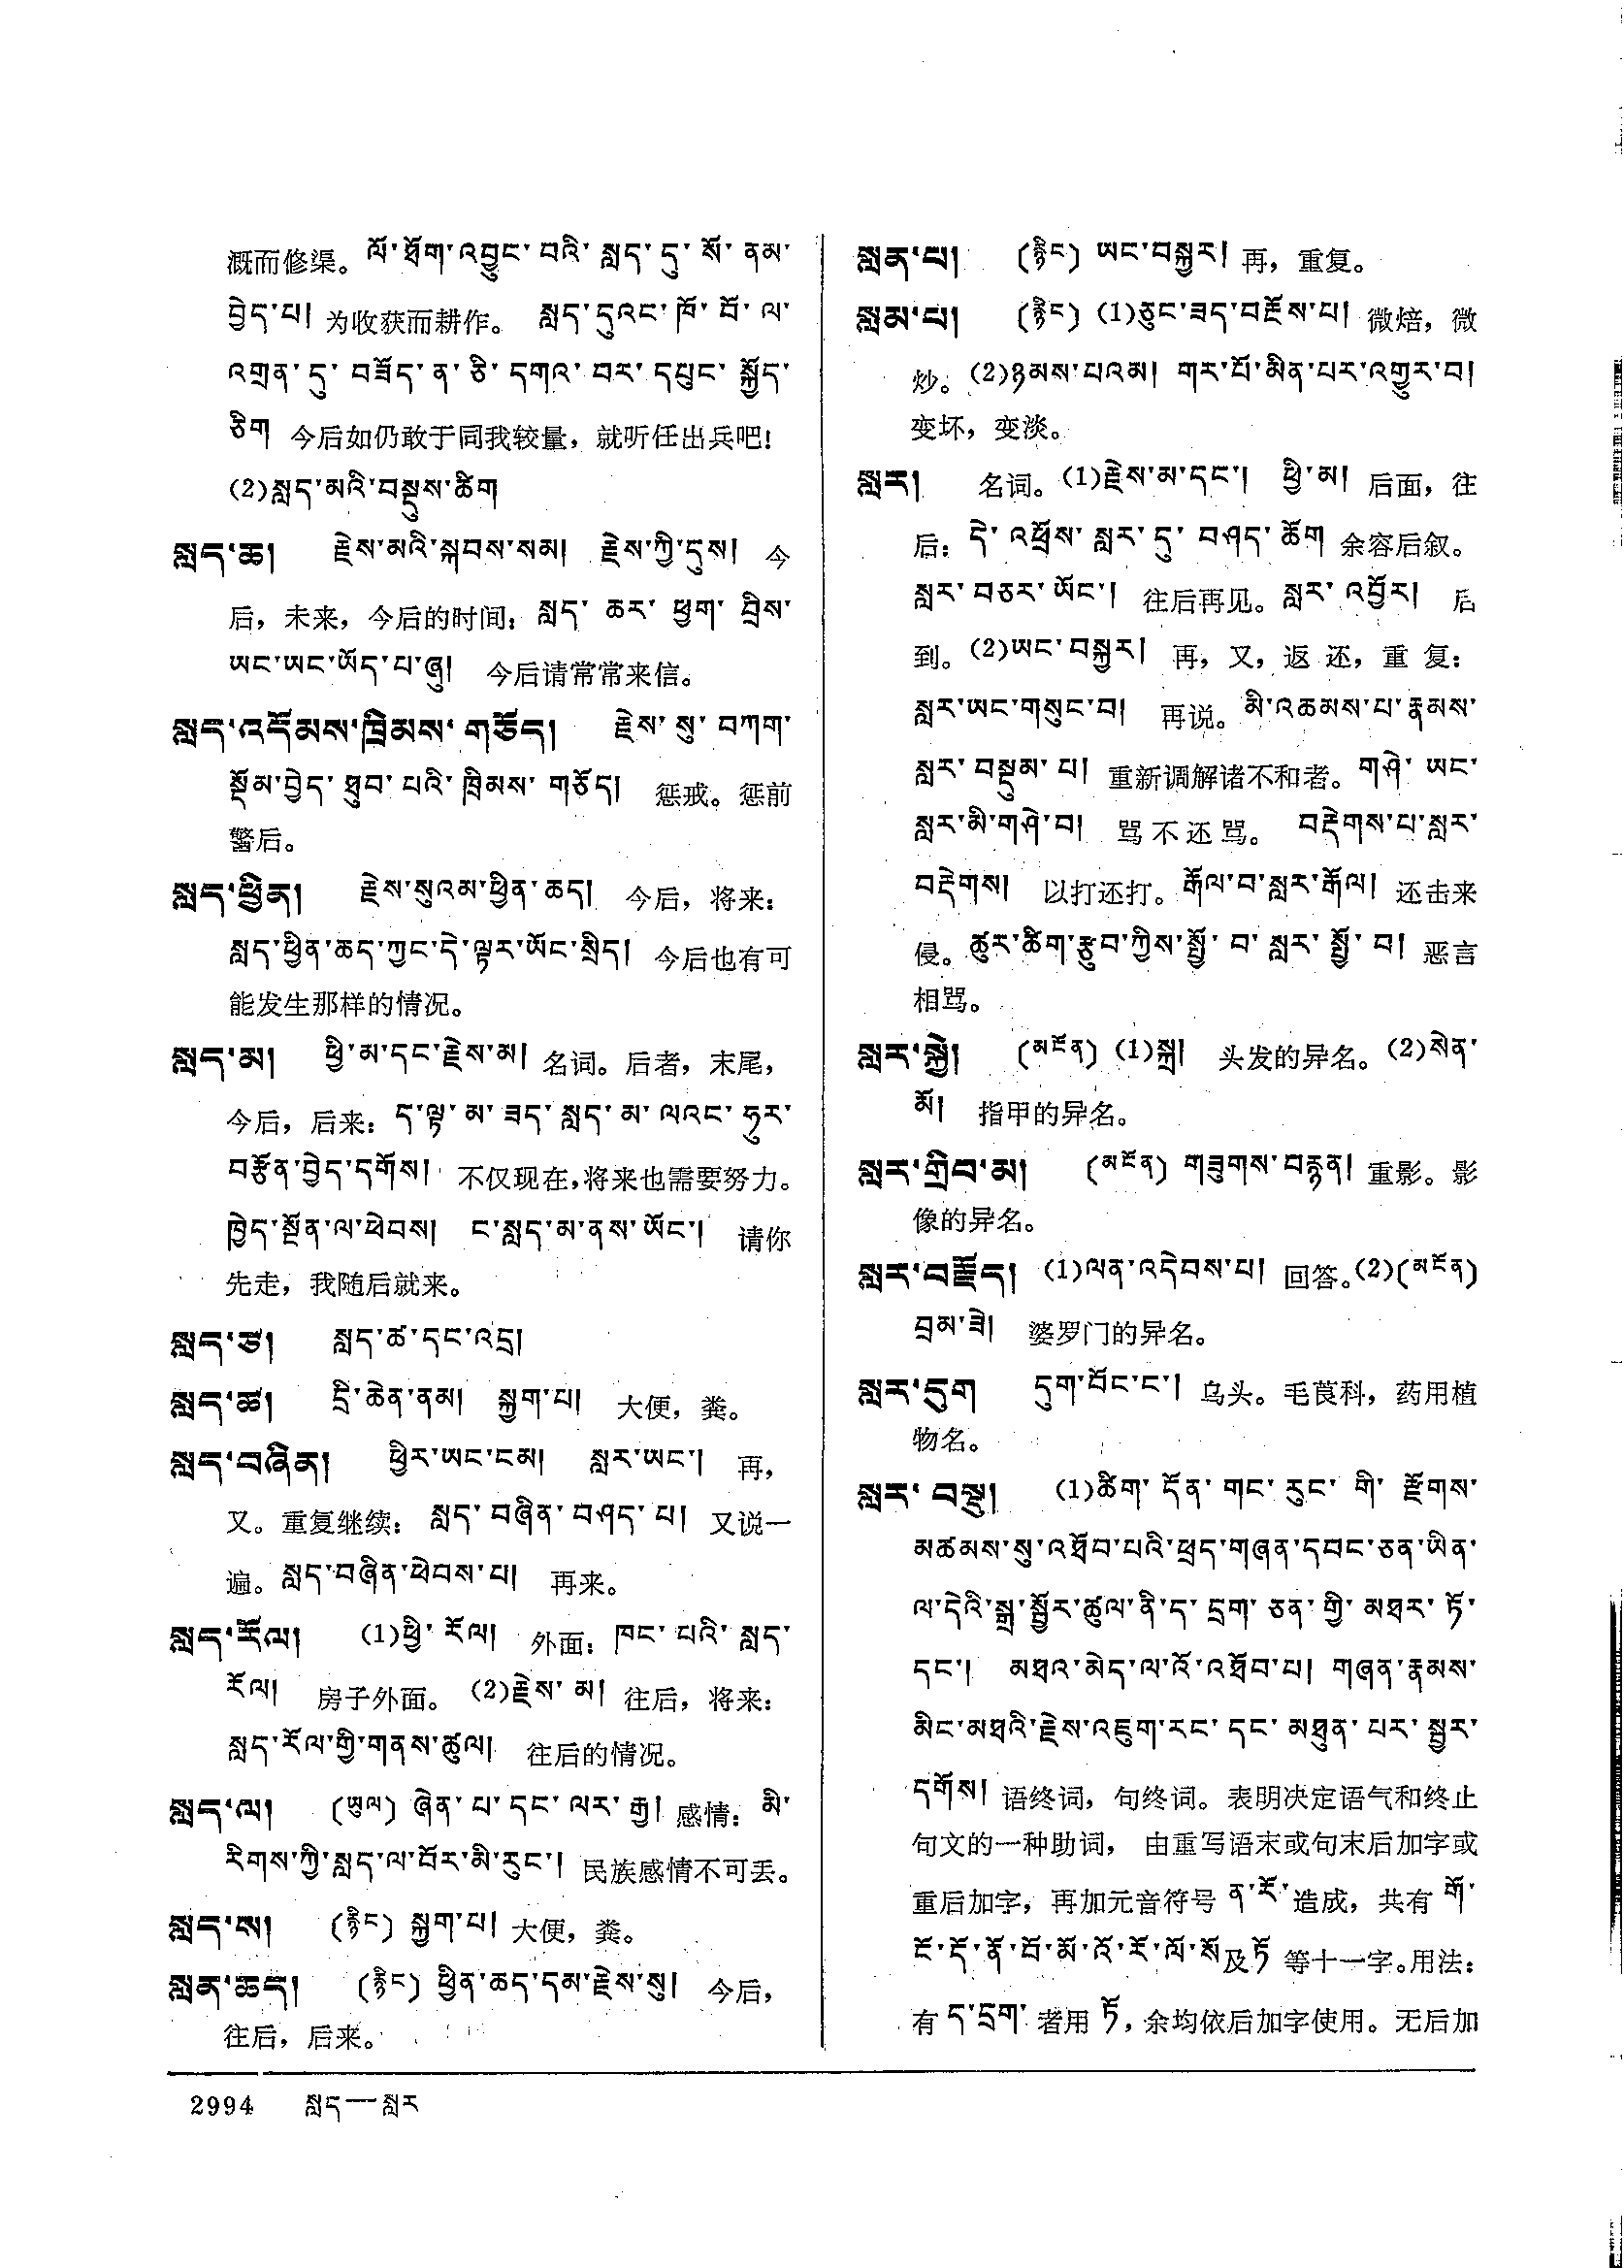 溉而修渠。ལོ་ཐོག་འབྱུང་བའི་སླད་དུ་སོ་ནམ་
བྱེད་པ། 为收获而耕作。 སླད་དུའང་ཁོ་བོ་ལ་
འགྲན་དུ་བཟོད་ན་ཅི་དགའ་བར་དཔུང་སྐྱོད་
ཅིག 今后如仍敢于同我较量，就听任出兵吧！
(2)སླད་མའི་བསྡུས་ཚིག
སླད་ཆ། རྗེས་མའི་སྐབས་སམ། རྗེས་ཀྱི་དུས། 今
后，未来，今后的时间：སླད་ཆར་ཕྱག་བྲིས་
ཡང་ཡང་ཡོད་པ་ཞུ། 今后请常常来信。
སླད་འདོམས་ཁྲིམས་གཅོད། རྗེས་སུ་བཀག་
སྡོམ་བྱེད་ཐུབ་པའི་ཁྲིམས་གཅོད། 惩戒。惩前
警后。
སླད་ཕྱིན། རྗེས་སུའམ་ཕྱིན་ཆད། 今后，将来：
སླད་ཕྱིན་ཆད་ཀྱང་དེ་ལྟར་ཡོང་སྲིད། 今后也有可
能发生那样的情况。
སླད་མ། ཕྱི་མ་དང་རྗེས་མ། 名词。后者，末尾，
今后，后来：ད་ལྟ་མ་ཟད་སླད་མ་ལའང་ཧུར་
བརྩོན་བྱེད་དགོས། 不仅现在，将来也需要努力。
ཁྱེད་སྔོན་ལ་ཕེབས། ང་སླད་མ་ནས་ཡོང་། 请你
先走，我随后就来。
སླད་ཙ། སླད་ཚ་དང་འདྲ།
སླད་ཚ། དྲི་ཆེན་ནམ། སྐྱག་པ། 大便，粪。
སླད་བཞིན། ཕྱིར་ཡང་ངམ། སླར་ཡང་། 再，
又。重复继续：སླད་བཞིན་བཤད་པ། 又说一
遍。སླད་བཞིན་ཕེབས་པ། 再来。
སླད་རོལ། (1)ཕྱི་རོལ། 外面：ཁང་པའི་སླད་
རོལ། 房子外面。(2)རྗེས་མ། 往后，将来：
སླད་རོལ་གྱི་གནས་ཚུལ། 往后的情况。
སླད་ལ། (ཡུལ) ཞེན་པ་དང་ལར་རྒྱ། 感情：མི་
རིགས་ཀྱི་སླད་ལ་བོར་མི་རུང་། 民族感情不可丢。
སླད་ས། (རྙིང) སྐྱག་པ། 大便，粪。
སླན་ཆད། (རྙིང) ཕྱིན་ཆད་དམ་རྗེས་སུ། 今后，
往后，后来。
སླན་པ། (རྙིང) ཡང་བསྐྱར། 再，重复。
སླམ་པ། (རྙིང) (1)ཅུང་ཟད་བརྔོས་པ། 微焙，微
炒。(2)ཉམས་པའམ། གར་པོ་མིན་པར་འགྱུར་བ།
变坏，变淡。
སླར། 名词。(1)རྗེས་མ་དང་། ཕྱི་མ། 后面，往
后：དེ་འཕྲོས་སླར་དུ་བཤད་ཆོག 余容后叙。
སླར་བཅར་ཡོང་། 往后再见。སླར་འབྱོར། 后
到。(2)ཡང་བསྐྱར། 再，又，返还，重复：
སླར་ཡང་གསུང་བ། 再说。མི་འཆམས་པ་རྣམས་
སླར་བསྡུམ་པ། 重新调解诸不和者。གཤེ་ཡང་
སླར་མི་གཤེ་བ། 骂不还骂。 བརྡེགས་པ་སླར་
བརྡེགས། 以打还打。རྒོལ་བ་སླར་རྒོལ། 还击来
侵。ཚུར་ཚིག་རྩུབ་ཀྱིས་སྤྱོ་བ་སླར་སྤྱོ་བ། 恶言
相骂。
སླར་སྐྱེ། (མངོན) (1)སྐྲ། 头发的异名。(2)སེན་
མོ། 指甲的异名。
སླར་གྲིབ་མ། (མངོན) གཟུགས་བརྙན། 重影。影
像的异名。
སླར་བརྗོད། (1)ལན་འདེབས་པ། 回答。(2)(མངོན)
བྲམ་ཟེ། 婆罗门的异名。
སླར་དུག དུག་བོང་ང་། 乌头。毛茛科，药用植
物名。
སླར་བསྡུ། (1)ཚིག་དོན་གང་རུང་གི་རྫོགས་
མཚམས་སུ་འཐོབ་པའི་ཕྲད་གཞན་དབང་ཅན་ཡིན་
ལ་དེའི་སྒྲ་སྦྱོར་ཚུལ་ནི་ད་དྲག་ཅན་གྱི་མཐར་ཏོ་
དང་། མཐའ་མེད་ལ་འོ་འཐོབ་པ། གཞན་རྣམས་
མིང་མཐའི་རྗེས་འཇུག་རང་དང་མཐུན་པར་སྦྱར་
དགོས། 语终词，句终词。表明决定语气和终止
句文的一种助词， 由重写语末或句末后加字或
重后加字，再加元音符号 ན་རོ་ 造成，共有 གོ་
ངོ་དོ་ནོ་བོ་མོ་འོ་རོ་ལོ་སོ 及 ཏོ 等十一字。用法：
有 ད་དྲག་ 者用 ཏོ，余均依后加字使用。无后加
2994 སླད—སླར